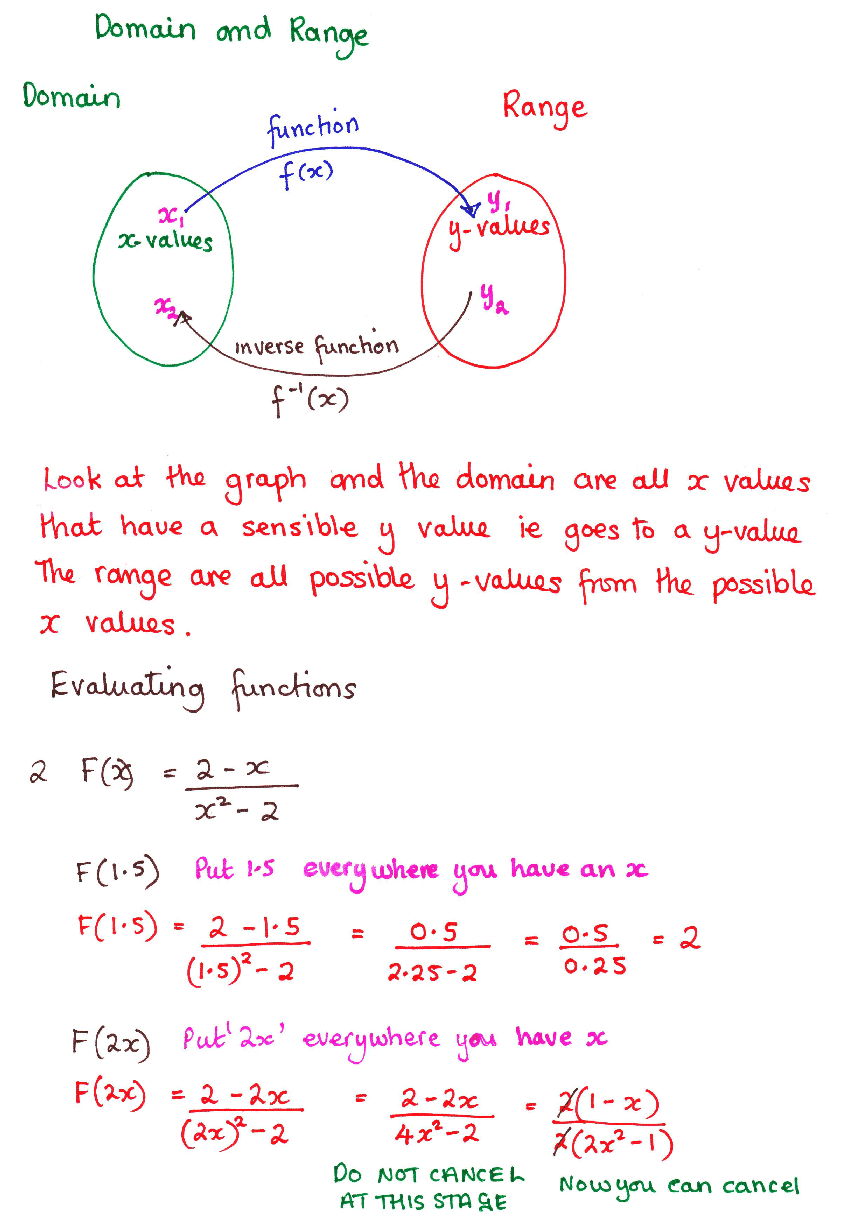 Domain and Range
Domain
Range
function
f(x)
x₁
x-values
x₂
y₁
y-values
y₂
inverse function
f⁻¹(x)
Look at the graph and the domain are all x values
that have a sensible y value ie goes to a y-value
The range are all possible y-values from the possible
x values.
Evaluating functions
2 F(x) = (2 - x)/(x² - 2)
F(1·5) Put 1·5 everywhere you have an x
F(1·5) = (2 - 1·5)/((1·5)² - 2) = 0·5/(2·25 - 2) = 0·5/0·25 = 2
F(2x) Put '2x' everywhere you have x
F(2x) = (2 - 2x)/((2x)² - 2) = (2 - 2x)/(4x² - 2) = 2(1 - x)/2(2x² - 1)
DO NOT CANCEL
AT THIS STAGE
Now you can cancel